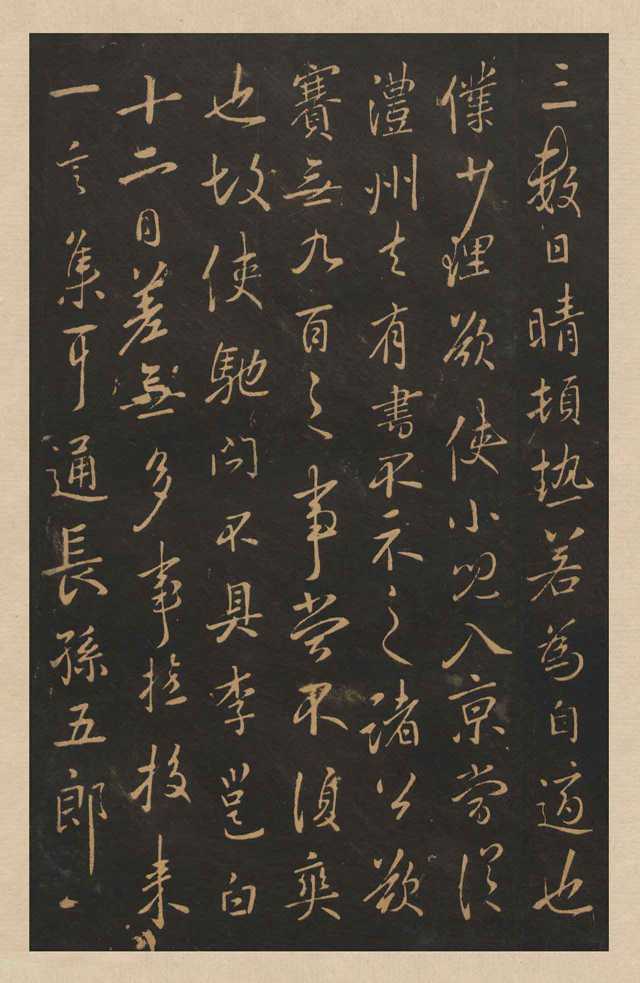 三數日晴頓熱若為自適也
僕少理欲使小兒入京當從
澧州去有書不示之諸公欲
賽無九百之事當不復爽
也故使馳問不具李邕白
十二日差無多事投來
一言集耳通長孫五郎